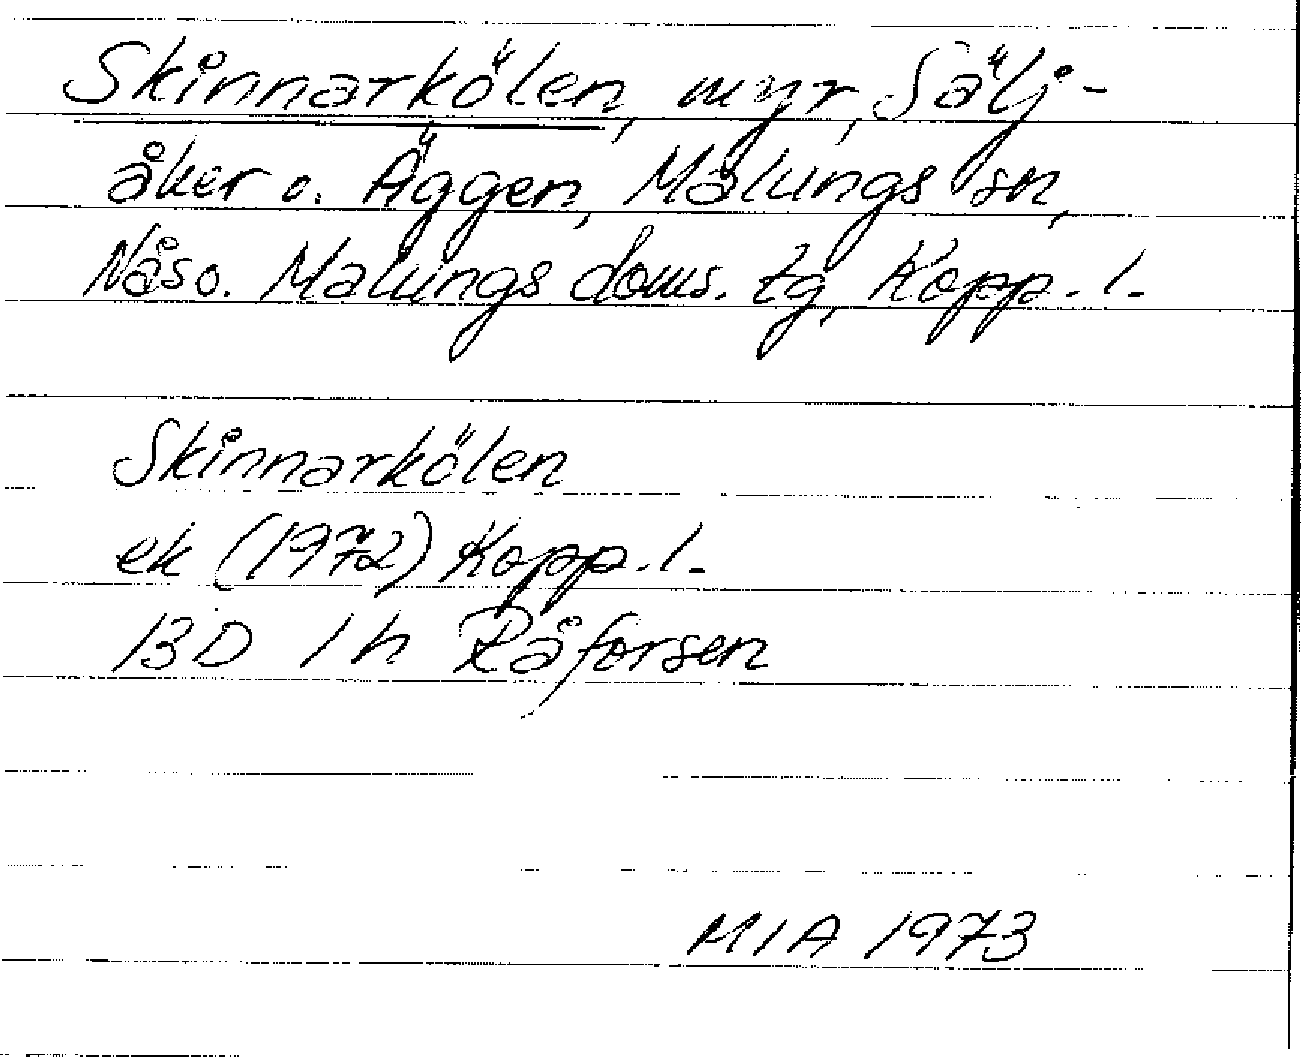 Skinnarkölen, myr, Sälj-
åker o. Äggen, Malungs sn,
Nås o. Malungs doms. tg, Kopp. l.
Skinnarkölen
ek (1972) Kopp. l.
13D 1h Råforsen
MIA 1973